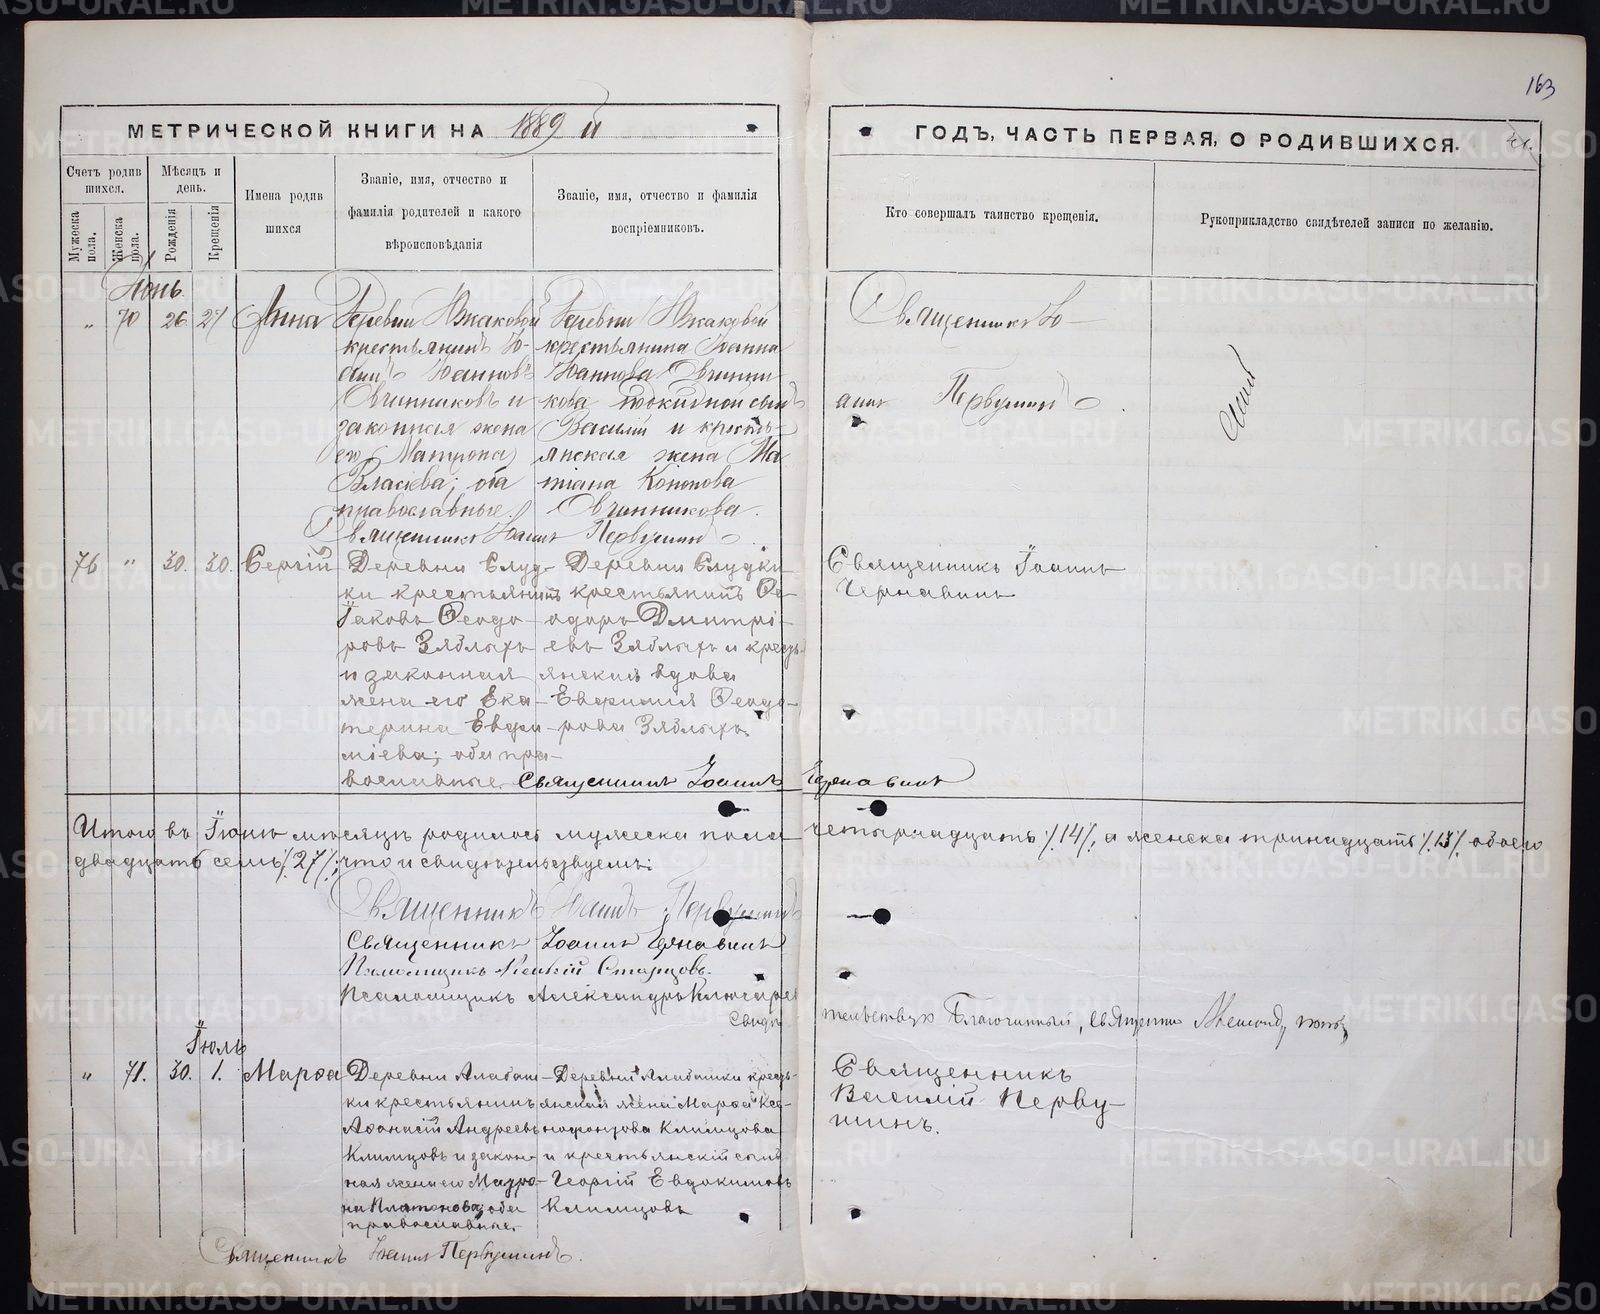 163
МЕТРИЧЕСКОЙ КНИГИ НА 1889 й
ГОДЪ, ЧАСТЬ ПЕРВАЯ, О РОДИВШИХСЯ.
Счетъ родив
шихся.
Мужеска пола.
Женска пола.
Мѣсяцъ и
день.
Рожденія
Крещенія
Имена родив
шихся
Званіе, имя, отчество и
фамилія родителей и какого
вѣроисповѣданія
Званіе, имя, отчество и фамилія
воспріемниковъ.
Кто совершалъ таинство крещенія.
Рукоприкладство свидѣтелей записи по желанію.
Іюнь.
„ 70 26 27 Анна
Деревни
крестьянинъ Іо-
аннъ Іоанновъ
Овчинниковъ и
законная жена
его Матрона
Власіева; оба
православные.
Деревни
крестьянина Іоанна
Іоаннова Овчинни
кова сынъ
Василій и кресть-
янская жена
Кононова
Овчинникова.
Священникъ Іоаннъ Первушинъ
Священникъ Іо-
аннъ Первушинъ
76 „ 30. 30. Сергій
Деревни Слуд-
ки крестьянинъ
Іаковъ Ѳеодо-
ровъ Зяблыхъ
и законная
жена его Ека-
терина Евфи-
міева; оба пра-
вославные.
Деревни Слудки
крестьянинъ Ѳе-
одоръ Дмитрі-
евъ Зяблыхъ и кресть-
янская вдова
Евфимія Ѳеодо-
рова Зяблыхъ.
Священникъ Іоаннъ Чернавинъ
Священникъ Іоаннъ
Чернавинъ
Итого въ Іюнѣ мѣсяцѣ родилось мужеска пола четырнадцать /14/, а женска тринадцать /13/ обоего
двадцать семь /27/; что и свидѣтельствуемъ:
Священникъ Іоаннъ Первушинъ
Священникъ Іоаннъ Чернавинъ
Псаломщикъ Старцовъ.
Псаломщикъ Александръ Ключаревъ
Свидѣтельствую Благочинный, Священникъ
Іюль
„ 71. 30. 1. Марѳа
Деревни Алабаш-
ки крестьянинъ
Аѳанасій Андреевъ
Климцовъ и закон-
ная жена его Матро-
на Платонова, оба
православные.
Деревни Алабашки кресть-
янская жена Марѳа Ксе-
нофонтова Климцова
и крестьянскій сынъ
Георгій Евдокимовъ
Климцовъ
Священникъ
Василій Перву-
шинъ.
Священникъ Іоаннъ Первушинъ.
METRIKI.GASO-URAL.RU